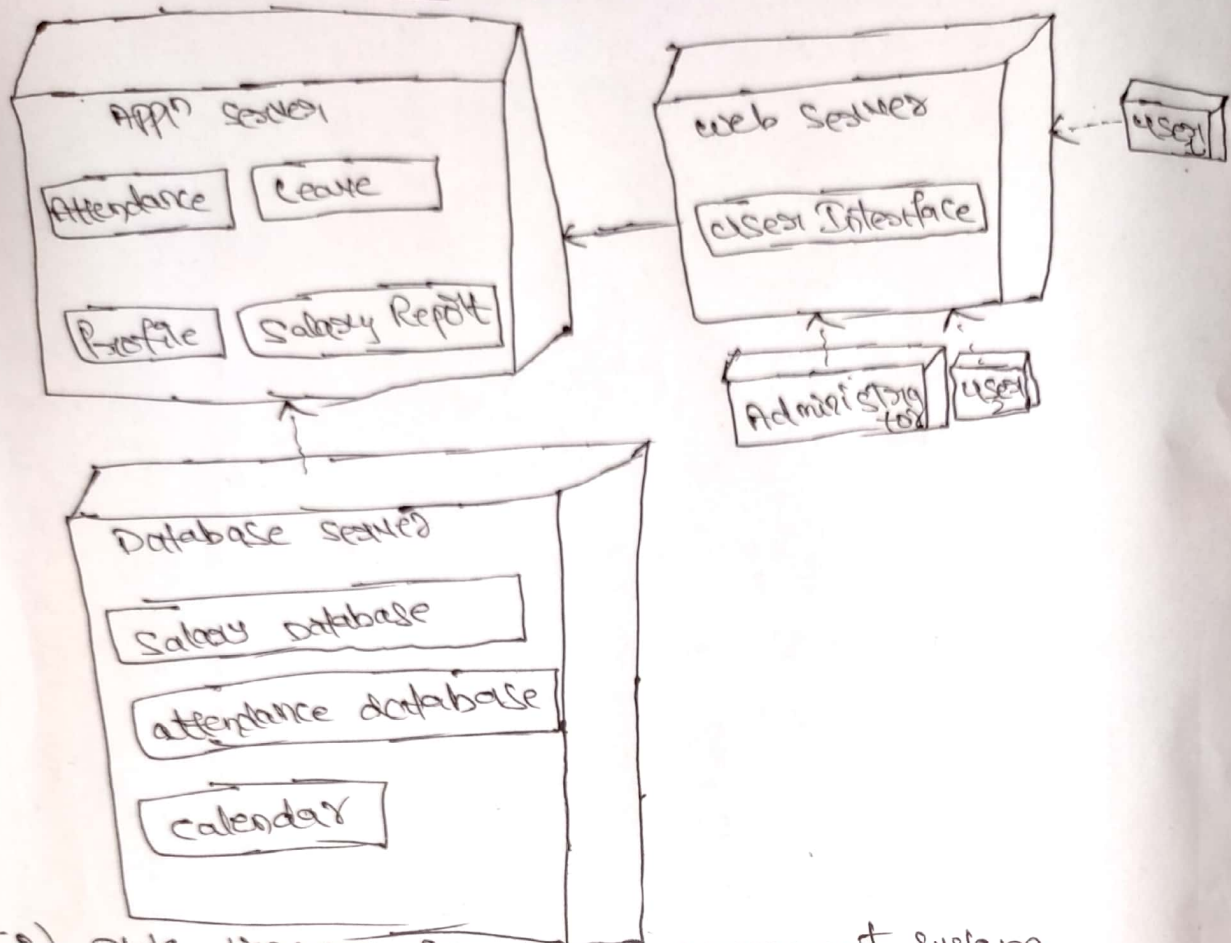 Appln server
Attendance
Leave
Profile
Salary Report
web server
User Interface
user 1
Administrator
user 2
Database server
Salary Database
attendance database
calendar